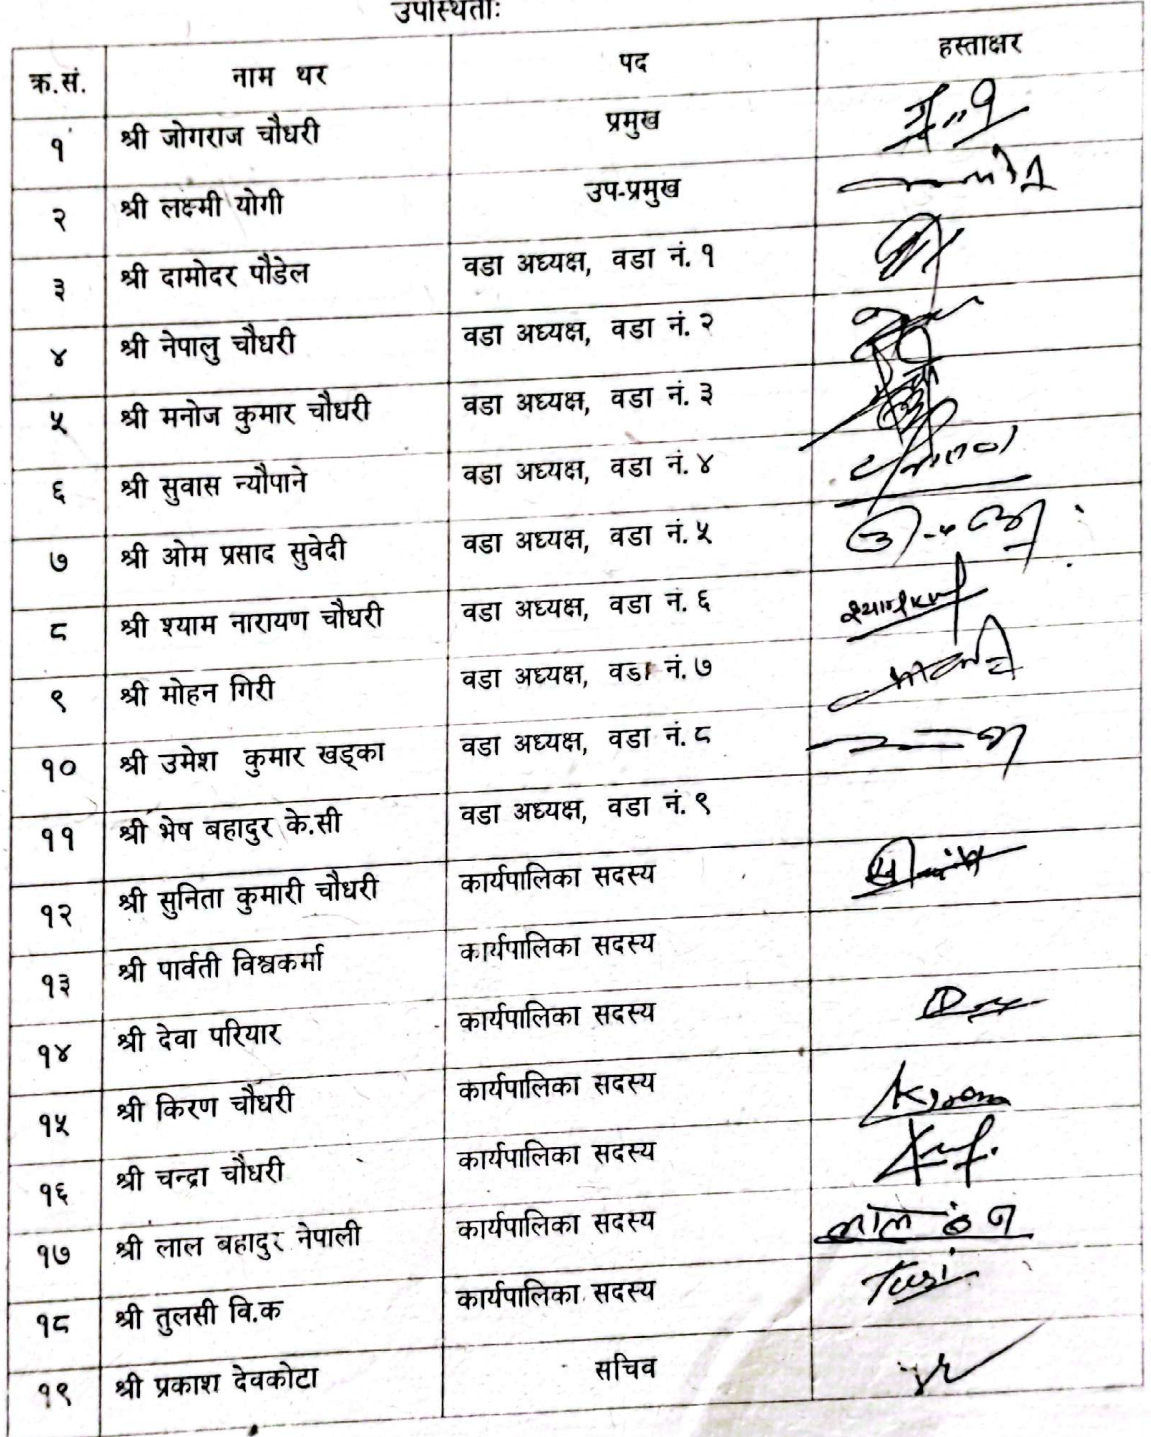 उपस्थितीः
क्र.सं. नाम थर पद हस्ताक्षर
१ श्री जोगराज चौधरी प्रमुख
२ श्री लक्ष्मी योगी उप-प्रमुख
३ श्री दामोदर पौडेल वडा अध्यक्ष, वडा नं. १
४ श्री नेपालु चौधरी वडा अध्यक्ष, वडा नं. २
५ श्री मनोज कुमार चौधरी वडा अध्यक्ष, वडा नं. ३
६ श्री सुवास न्यौपाने वडा अध्यक्ष, वडा नं. ४
७ श्री ओम प्रसाद सुवेदी वडा अध्यक्ष, वडा नं. ५
८ श्री श्याम नारायण चौधरी वडा अध्यक्ष, वडा नं. ६
९ श्री मोहन गिरी वडा अध्यक्ष, वडा नं. ७
१० श्री उमेश कुमार खड्का वडा अध्यक्ष, वडा नं. ८
११ श्री भेष बहादुर के.सी वडा अध्यक्ष, वडा नं. ९
१२ श्री सुनिता कुमारी चौधरी कार्यपालिका सदस्य
१३ श्री पार्वती विश्वकर्मा कार्यपालिका सदस्य
१४ श्री देवा परियार कार्यपालिका सदस्य
१५ श्री किरण चौधरी कार्यपालिका सदस्य
१६ श्री चन्द्रा चौधरी कार्यपालिका सदस्य
१७ श्री लाल बहादुर नेपाली कार्यपालिका सदस्य
१८ श्री तुलसी वि.क कार्यपालिका सदस्य
१९ श्री प्रकाश देवकोटा सचिव